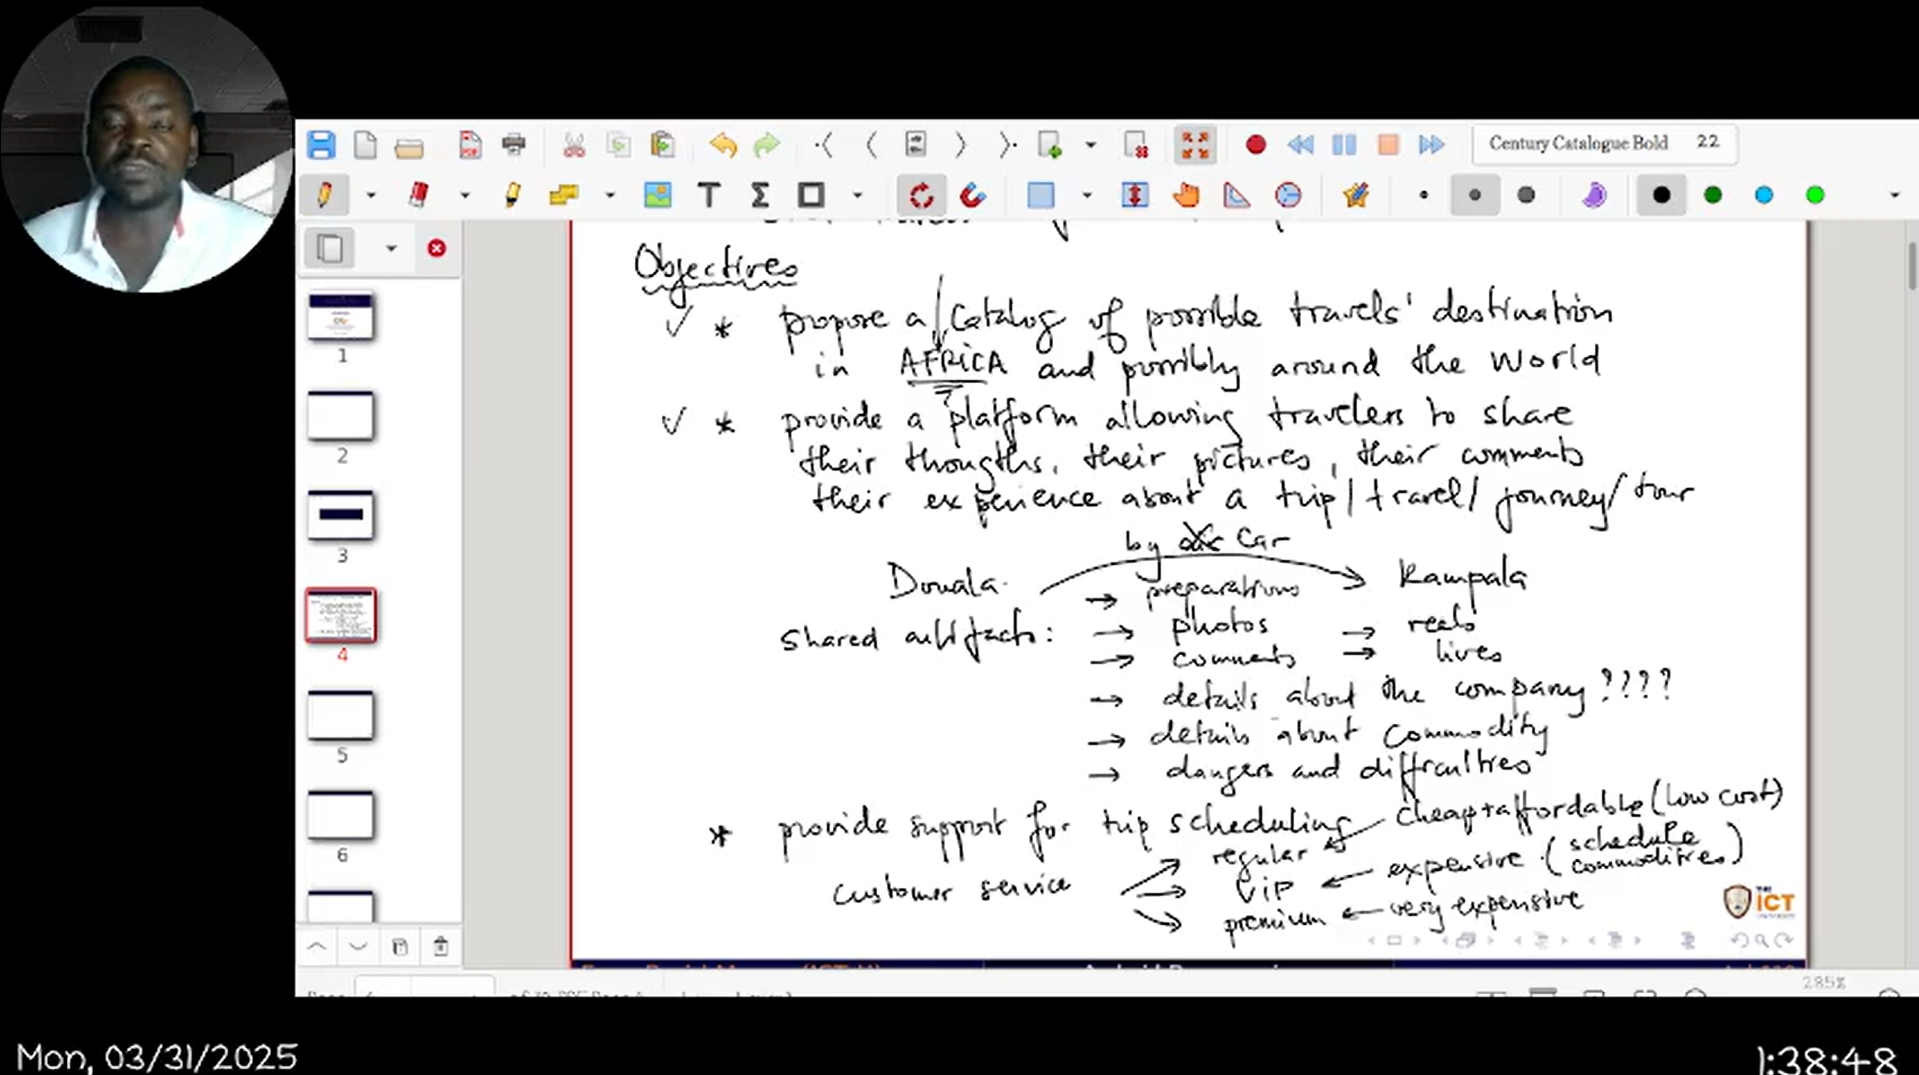 Century Catalogue Bold 22
Objectives
✓ * propose a catalog of possible travels' destination
in AFRICA and possibly around the world
✓ * provide a platform allowing travelers to share
their thougths, their pictures, their comments
their experience about a trip/travel/journey/tour
by Car
Douala → Kampala
→ preparations
shared artifacts: → photos → reels
→ comments → lives
→ details about the company ????
→ details about commodity
→ dangers and difficulties
* provide support for trip scheduling
cheap+affordable (low cost)
customer service → regular
→ vip ← expensive (schedule commodities)
→ premium ← very expensive
THE
ICT
UNIVERSITY
1
2
3
4
5
6
285%
Mon, 03/31/2025
1:38:48